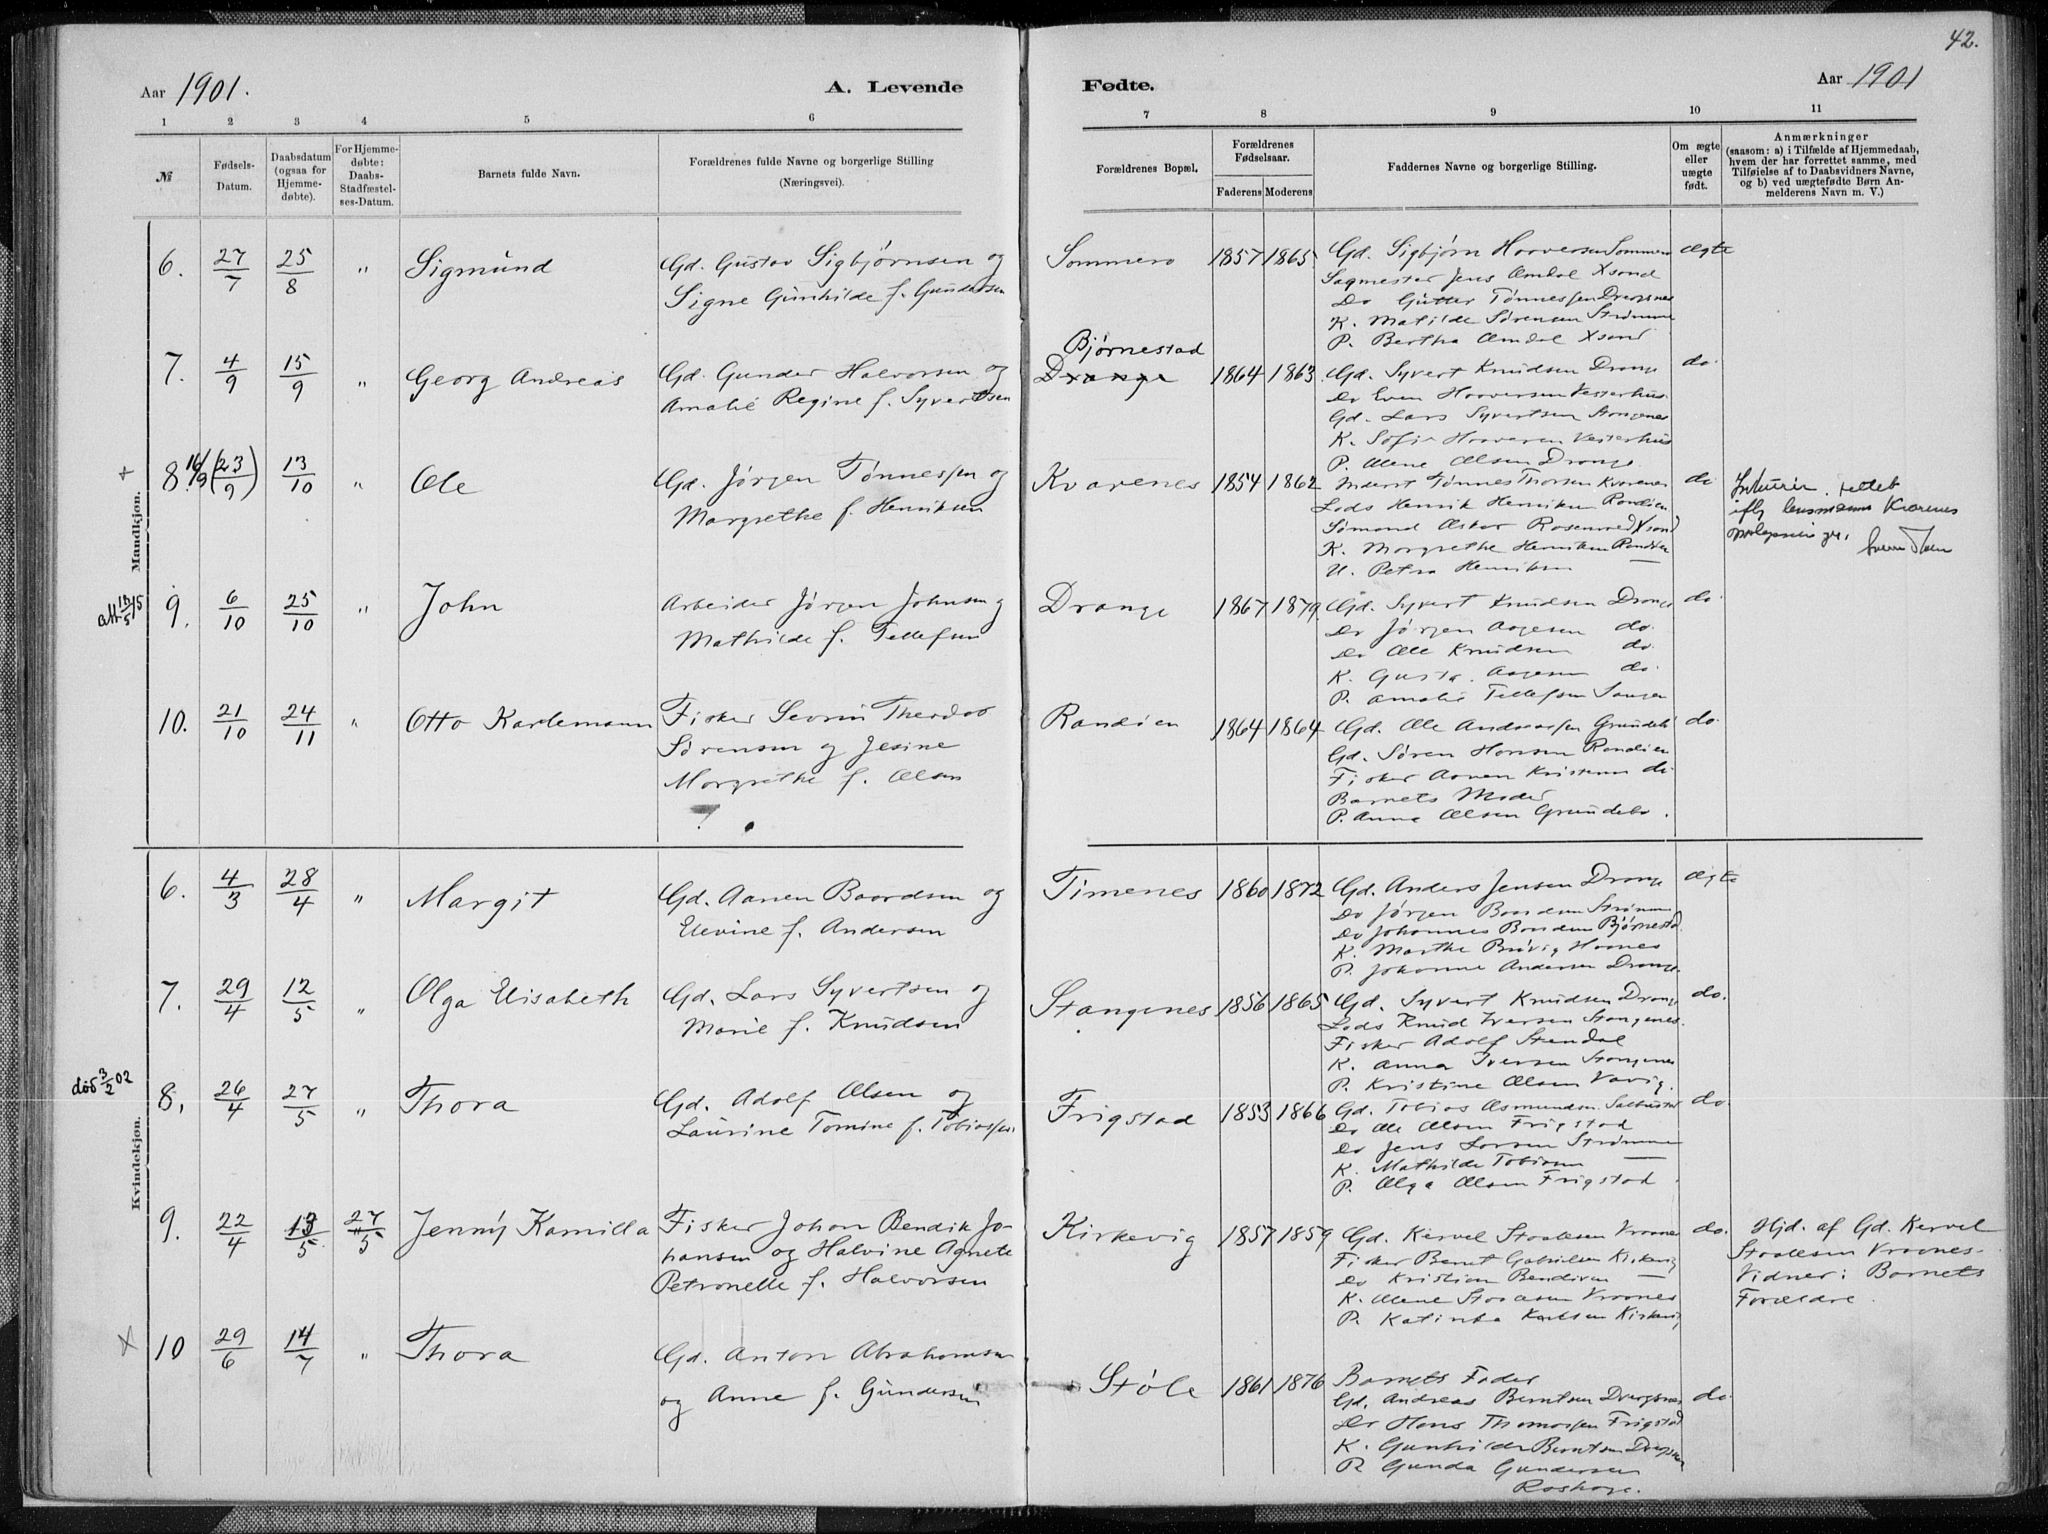 42.
Aar 1901.
A. Levende
Fødte.
Aar 1901
1 2 3 4 5 6
7 8 9 10 11
№
Fødsels-
Datum.
Daabsdatum
(ogsaa for
Hjemme-
døbte).
For Hjemme-
døbte:
Daabs-
Stadfæstel-
ses-Datum.
Barnets fulde Navn.
Forældrenes fulde Navne og borgerlige Stilling
(Næringsvei).
Forældrenes Bopæl.
Forældrenes
Fødselsaar.
Faderens Moderens
Faddernes Navne og borgerlige Stilling.
Om ægte
eller
uægte
født.
Anmærkninger
(saasom: a) i Tilfælde af Hjemmedaab,
hvem der har forrettet samme, med
Tilføielse af to Daabsvidners Navne,
og b) ved uægtefødte Børn An-
melderens Navn m. V.)
Mandkjøn.
6. 27/7 25/8 " Sigmund
Gd. Gustav Sigbjørnsen og
Signe Gunhilde f. Gundersen
Sommero 1857 1865
Gd. Sigbjørn Haaversen Sommero
Sagmester Jens Omdal Xsand
Do Gutter Tønnessen Dvergsnes
K. Matilde Sørensen Strømme
P. Bertha Omdal Xsand
ægte
7. 4/9 15/9 " Georg Andreas
Gd. Gunder Halvorsen og
Amalie Regine f. Syvertsen
Bjørnestad
Drange 1864 1863.
Gd. Syvert Knudsen Drange
Do Even Haaversen Vesterhus
Gd. Lars Syvertsen Stangenes
K. Sofie Haaversen Vesterhus
P. Alene Olsen Drange
do.
+ 8. 16/9 (23/9) 13/10 " Ole
Gd. Jørgen Tønnessen og
Margrethe f. Henriksen
Kvarenes 1854 1862
Inderst Tønnes Thorsen Kvarenes
Lods Henrik Henriksen Randøen
Sømand Oskar Rosenved Xsand
K. Margrethe Henriksen Randøen
U. Petra Henriksen —
do
rettet
ifly lensmann Kvarenes
9. 6/10 25/10 " John
Arbeider Jørgen Johnsen og
Mathilde f. Tellefsen
Drange 1867 1879.
Gd. Syvert Knudsen Drange
Do Jørgen Aagesen do.
Do Ole Knudsen do.
K. Gusta Aagesen do.
P. Amalie Tellefsen
do.
10. 21/10 24/11 " Otto Karlemann
Fisker Sevrin Theodor
Sørensen og Jesine
Margrethe f. Olsen
Randøen 1864 1864
Gd. Ole Andreassen Grundebø
Gd. Søren Hansen Randøen
Fisker Aanen Kristensen do.
Barnets Moder
P. Anna Olsen Grundebø.
do.
Kvindekjøn.
6. 4/3 28/4 " Margit
Gd. Aanen Baardsen og
Elevine f. Andersen
Timenes 1860 1872
Gd. Anders Jensen Drange
Do Jørgen Baardsen Strømme
Do Johannes Baardsen Bjørnestad
K. Marthe Brøvig Haanes
P. Johanne Andersen Drange.
ægte
7. 29/4 12/5 " Olga Elisabeth
Gd. Lars Syvertsen og
Marie f. Knudsen
Stangenes 1856 1865
Gd. Syvert Knudsen Drange
Lods Knud Iversen Stangenes.
Fisker Adolf Stendal
K. Anna Iversen Stangenes
P. Kristine Olsen Vaavig.
do.
død 3/2 02 8. 26/4 27/5 " Thora
Gd. Adolf Olsen og
Laurine Tomine f. Tobiassen
Frigstad 1853 1866
Gd. Tobias Asmundsen
Do Ole Olsen Frigstad
Do Jens Larsen Strømme
K. Mathilde Tobiasen —
P. Olga Olsen Frigstad.
do.
9. 22/4 13/5 27/5 Jenny Kamilla
Fisker Johan Bendik Jo-
hansen og Halvine Agnete
Petronelle f. Halvorsen
Kirkevig 1857 1859
Gd. Kervel Staalesen Vraanes
Fisker Bernt Gabrielsen Kirkevig
Do Kristian Bendixen —
K. Alene Staalesen Vraanes
P. Katinka Karlsen Kirkevig
do.
Hjd. af Gd. Kervel
Staalesen Vraanes.
Vidner: Barnets
Forældre.
10 29/6 14/7 " Thora
Gd. Anton Abrahamsen
og Anne f. Gundersen
Støle 1861 1876
Barnets Fader
Gd. Andreas Berntsen Dvergsnes
Do Hans Thomassen Frigstad
K. Gunhilde Berntsen Dvergsnes
P. Gunda Gundersen
do.